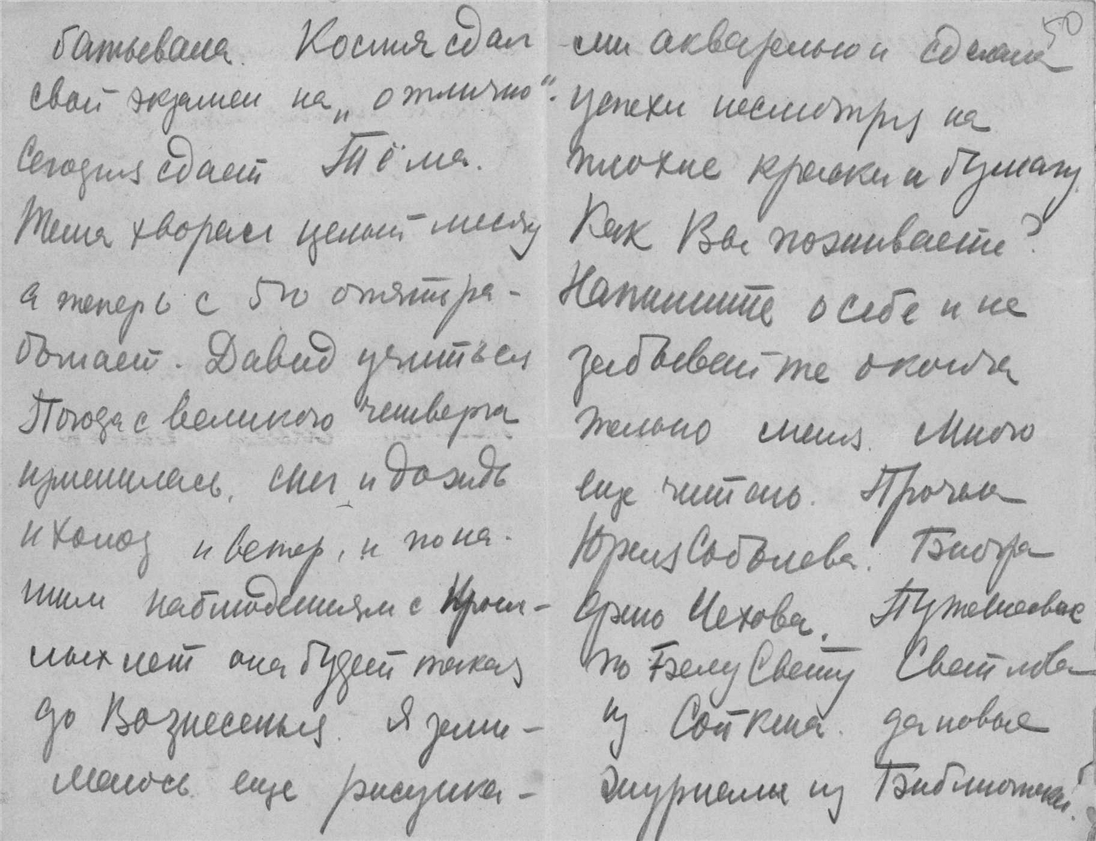 батывала. Костя сдал
свой экзамен на „отлично".
Сегодня сдает Тёма.
Тема хворал целый месяц
а теперь с 5го опять ра-
ботает. Давид учиться
Погода с великого четверга
изменилась, снег и дождь
и холод и ветер, и по на-
шим наблюдениям с прош-
лых лет она будет такая
до Вознесенья. Я зани-
малась еще рисунка-
50
ми акварелью и сделала
успехи несмотря на
плохие краски и бумагу.
Как Вы поживаете?
Напишите о себе и не
забывайте оконча
тельно меня. Много
еще читаю. Прочла
Юрия Соболева. Биогра
фию Чехова.
по Белу Свету Светлова
из да новые
журналы из Библиотеки.